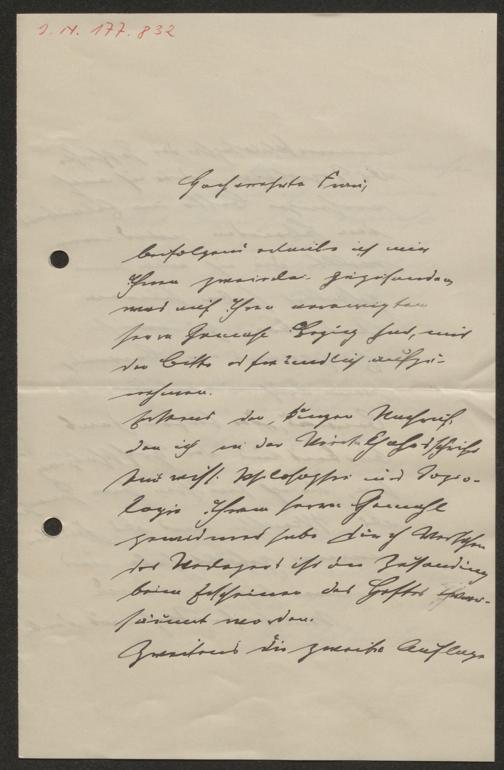 I. N. 177.832
Hochverehrte Frau,
beifolgend erlaube ich mir
Ihnen zweierlei zuzusenden
was auf Ihren verewigten
Herrn Gemahl Bezug hat, mit
der Bitte es freundlich aufzu-
nehmen.
Erstens den kurzen Nachruf,
den ich in der Vierteljahrsschrift
für wiss. Philosophie und Sozio-
logie Ihrem Herrn Gemahl
gewidmet habe durch Versehen
des Verlages ist die Zusendung
beim Erscheinen des Heftes ver-
säumt worden.
Zweitens die zweite Auflage